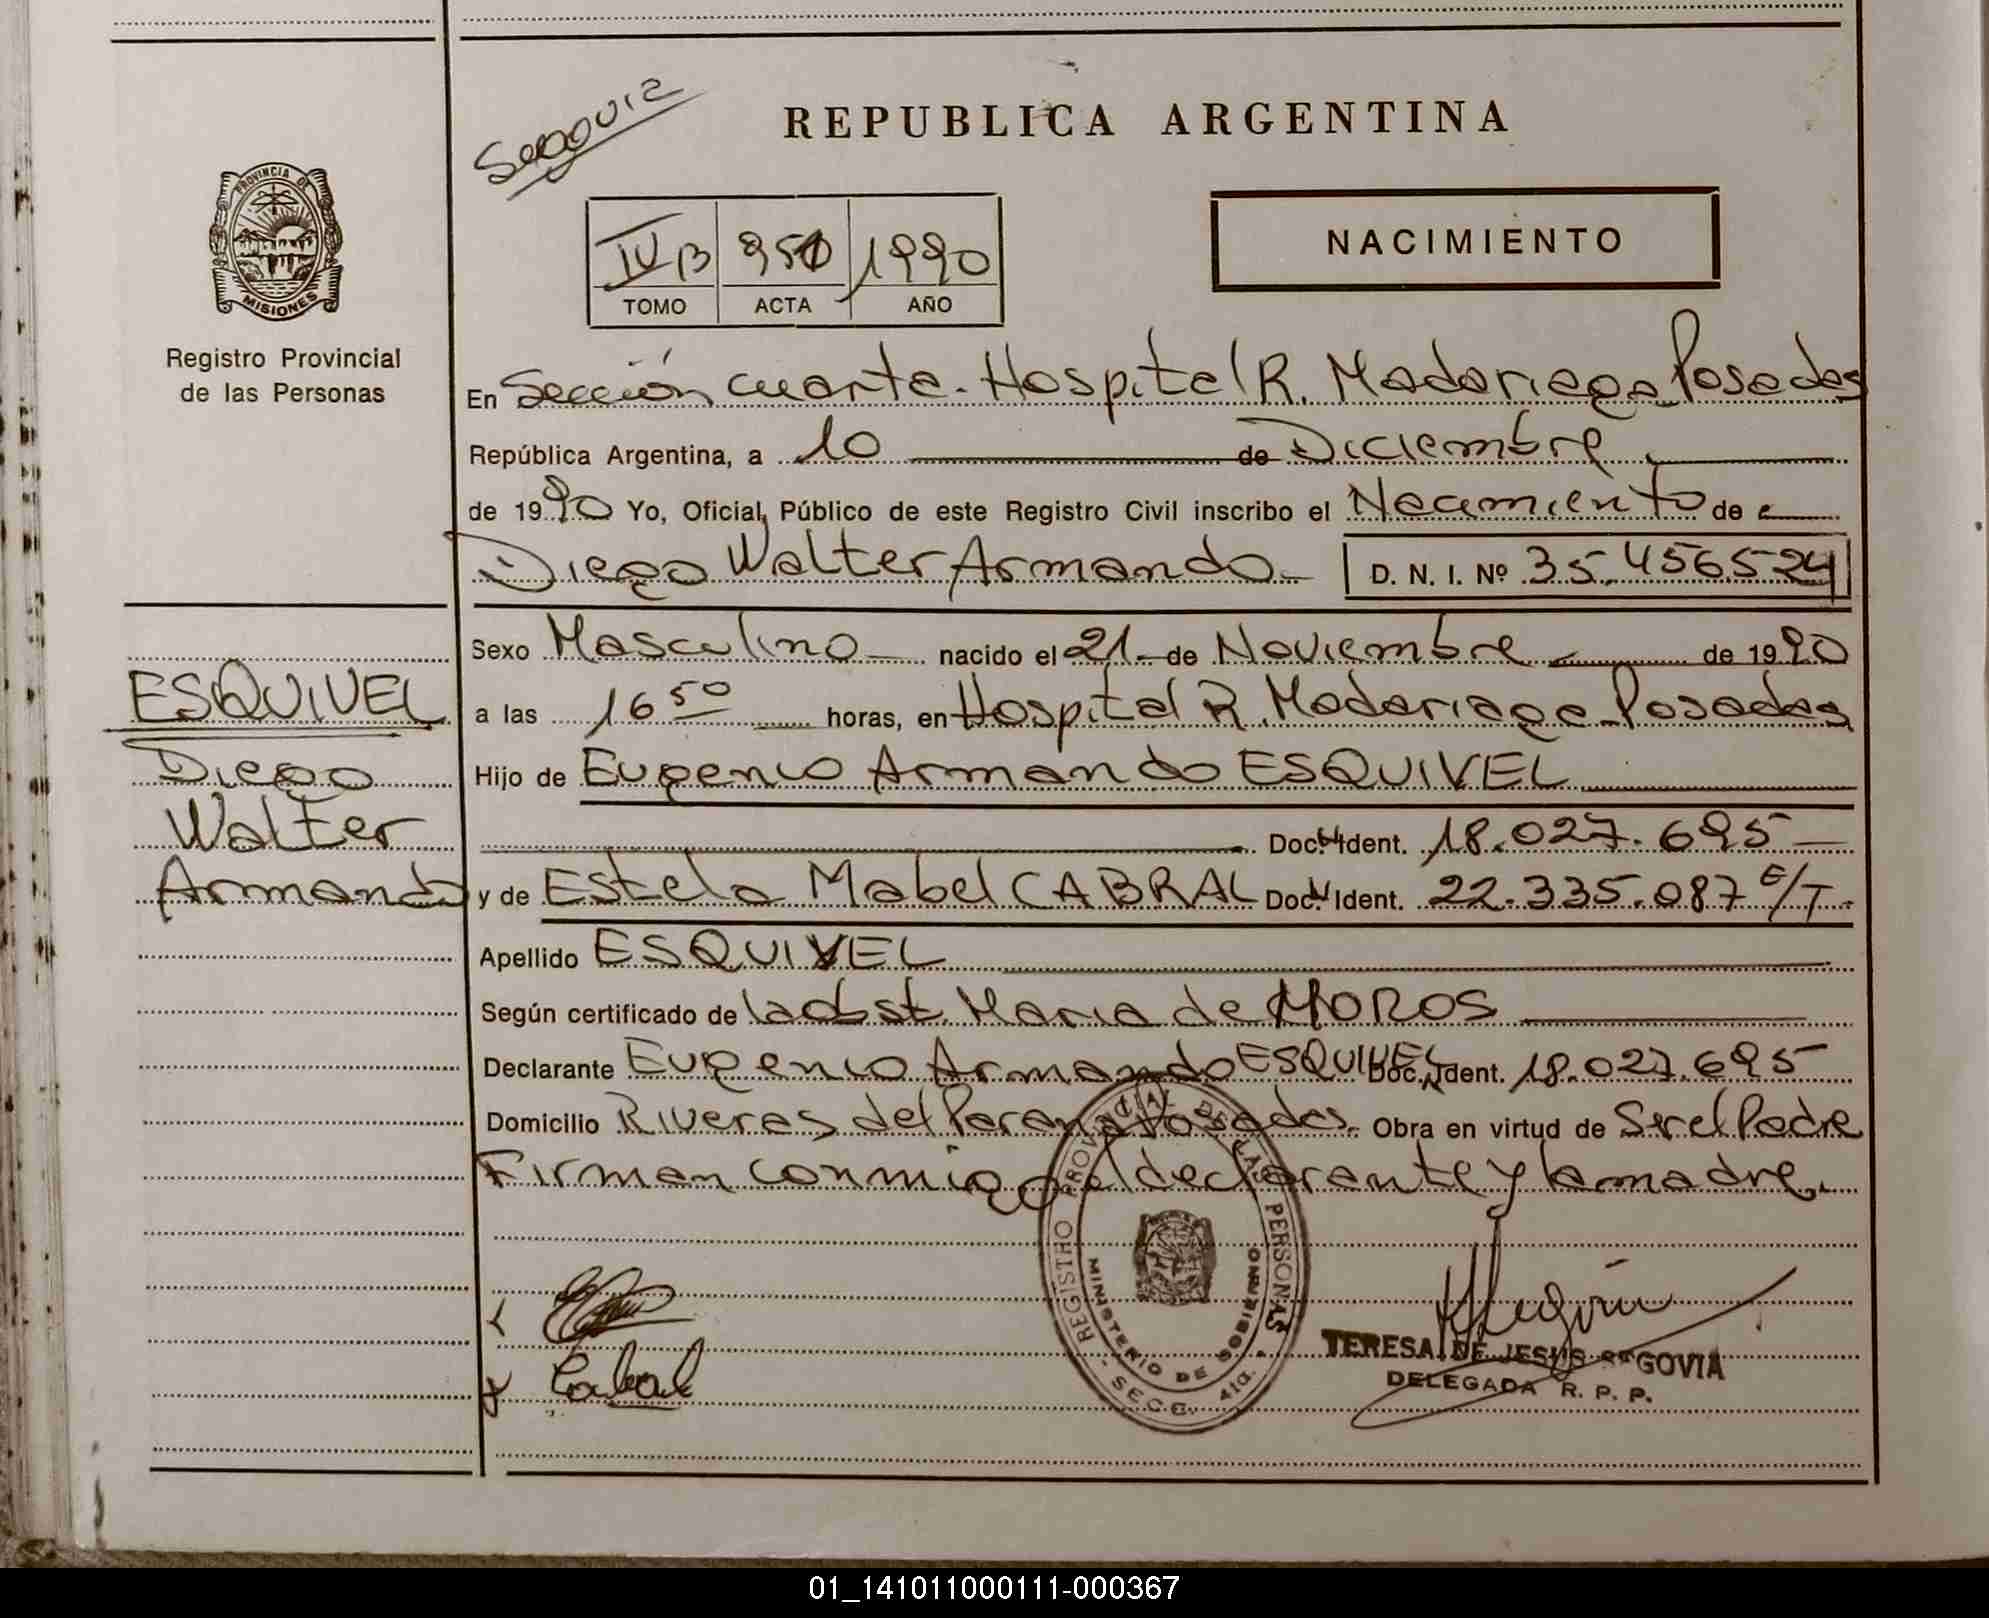 REPUBLICA ARGENTINA
PROVINCIA DE
MISIONES
Registro Provincial
de las Personas
IV B 1990
TOMO ACTA AÑO
NACIMIENTO
En Sección cuarta - Hospital R. Madariaga Posadas
República Argentina, a 10 de Diciembre
de 1990 Yo, Oficial Público de este Registro Civil inscribo el Nacimiento de
Diego Walter Armando D. N. I. Nº 35.456524
Sexo Masculino nacido el 21 de Noviembre de 1990
a las 16 50 horas, en Hospital R. Madariaga - Posadas
Hijo de Eugenio Armando ESQUIVEL
Doc. Ident. 18.027.695
y de Estela Mabel CABRAL Doc. Ident. 22.335.087 E/T.
Apellido ESQUIVEL
Según certificado de la obst. Maria de MOROS
Declarante Eugenio Armando ESQUIVEL Doc. Ident. 18.027.695
Domicilio Riveras del Parana Posadas. Obra en virtud de Ser el Padre
Firman conmigo el declarante y la madre.
ESQUIVEL
Diego
Walter
Armando
REGISTRO PROVINCIAL DE LAS PERSONAS
MINISTERIO DE GOBIERNO
SECC. 4ta.
Cabral
TERESA DE JESUS SEGOVIA
DELEGADA R. P. P.
01_141011000111-000367